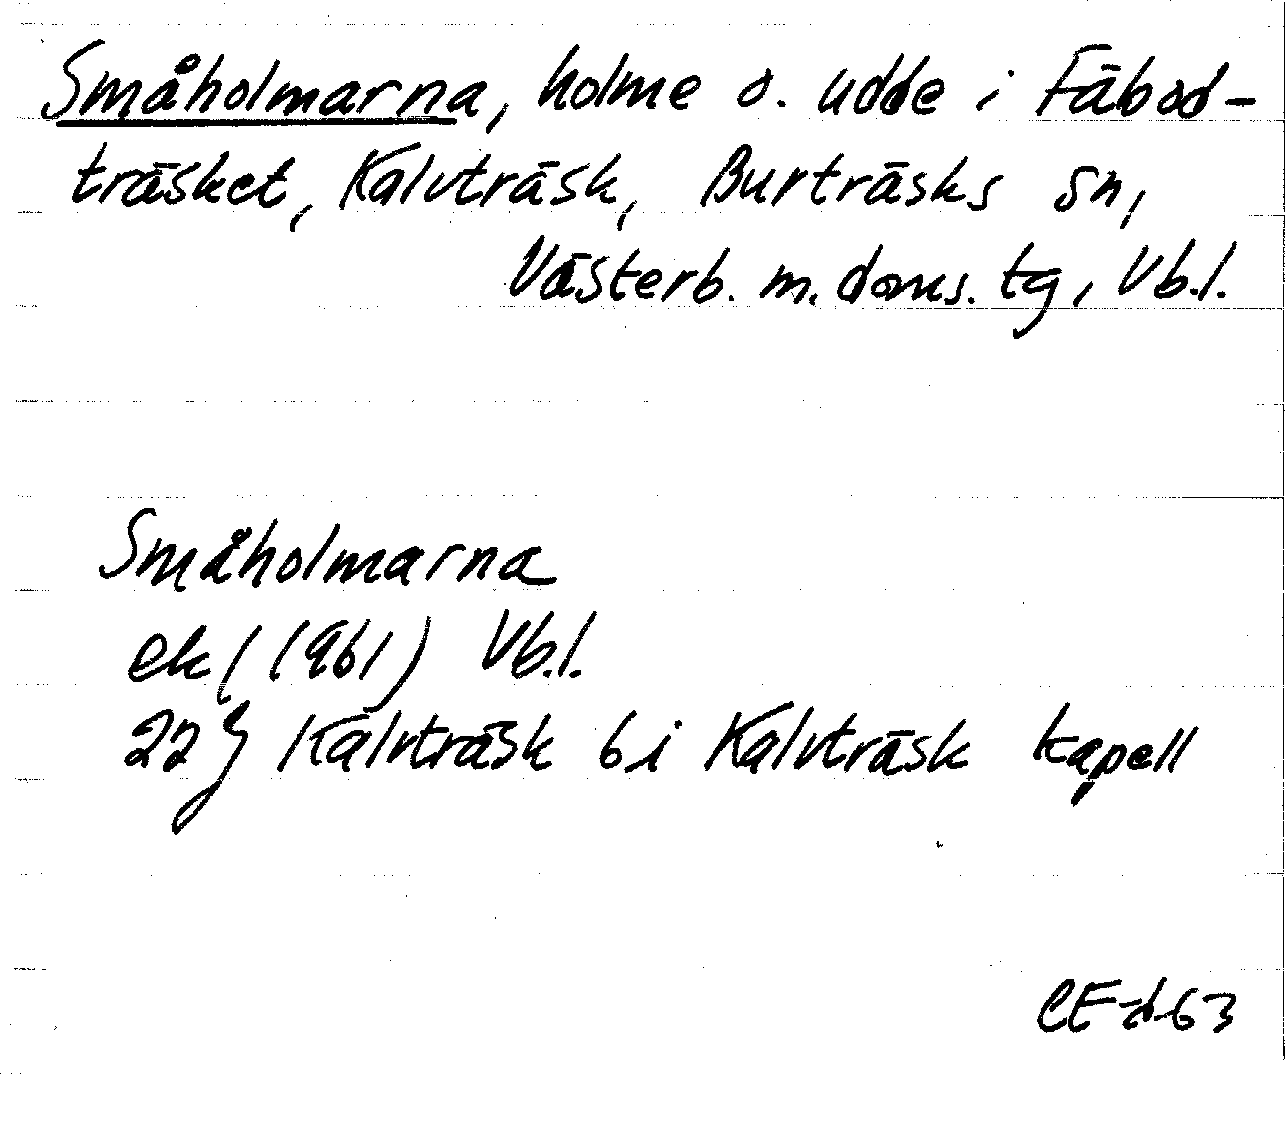 Småholmarna, holme o. udde i Fäbod-
träsket, Kalvträsk, Burträsks sn,
Västerb. m. doms. tg, Vb.l.
Småholmarna
ek (1961) Vb.l.
22J Kalvträsk 6i Kalvträsk kapell
CE-d-63